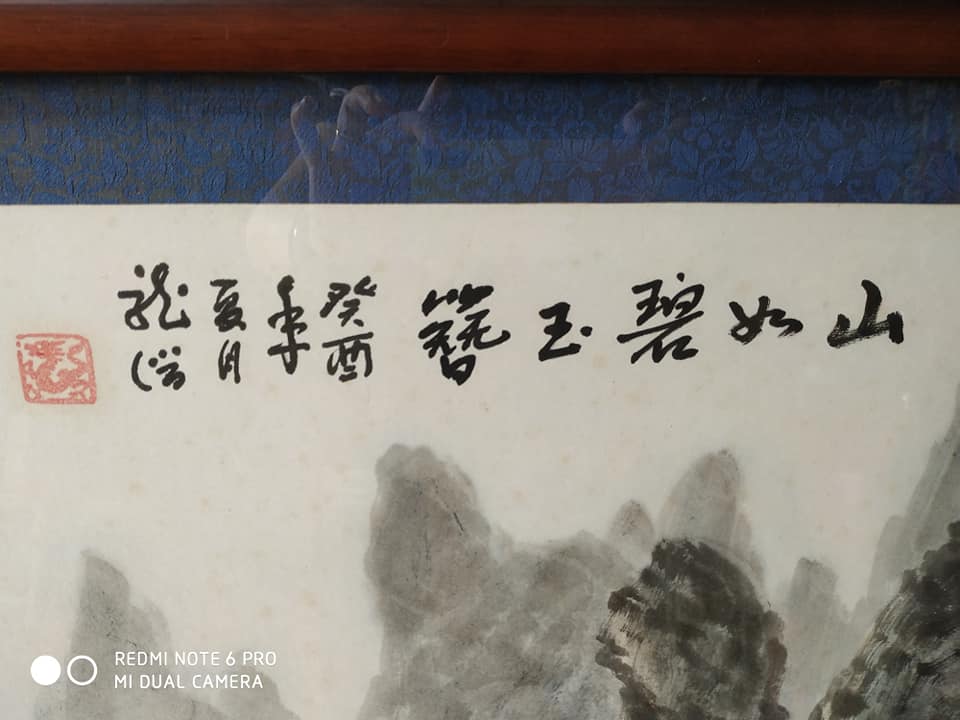 山如碧玉簪
癸酉
年
夏月
龙
REDMI NOTE 6 PRO
MI DUAL CAMERA